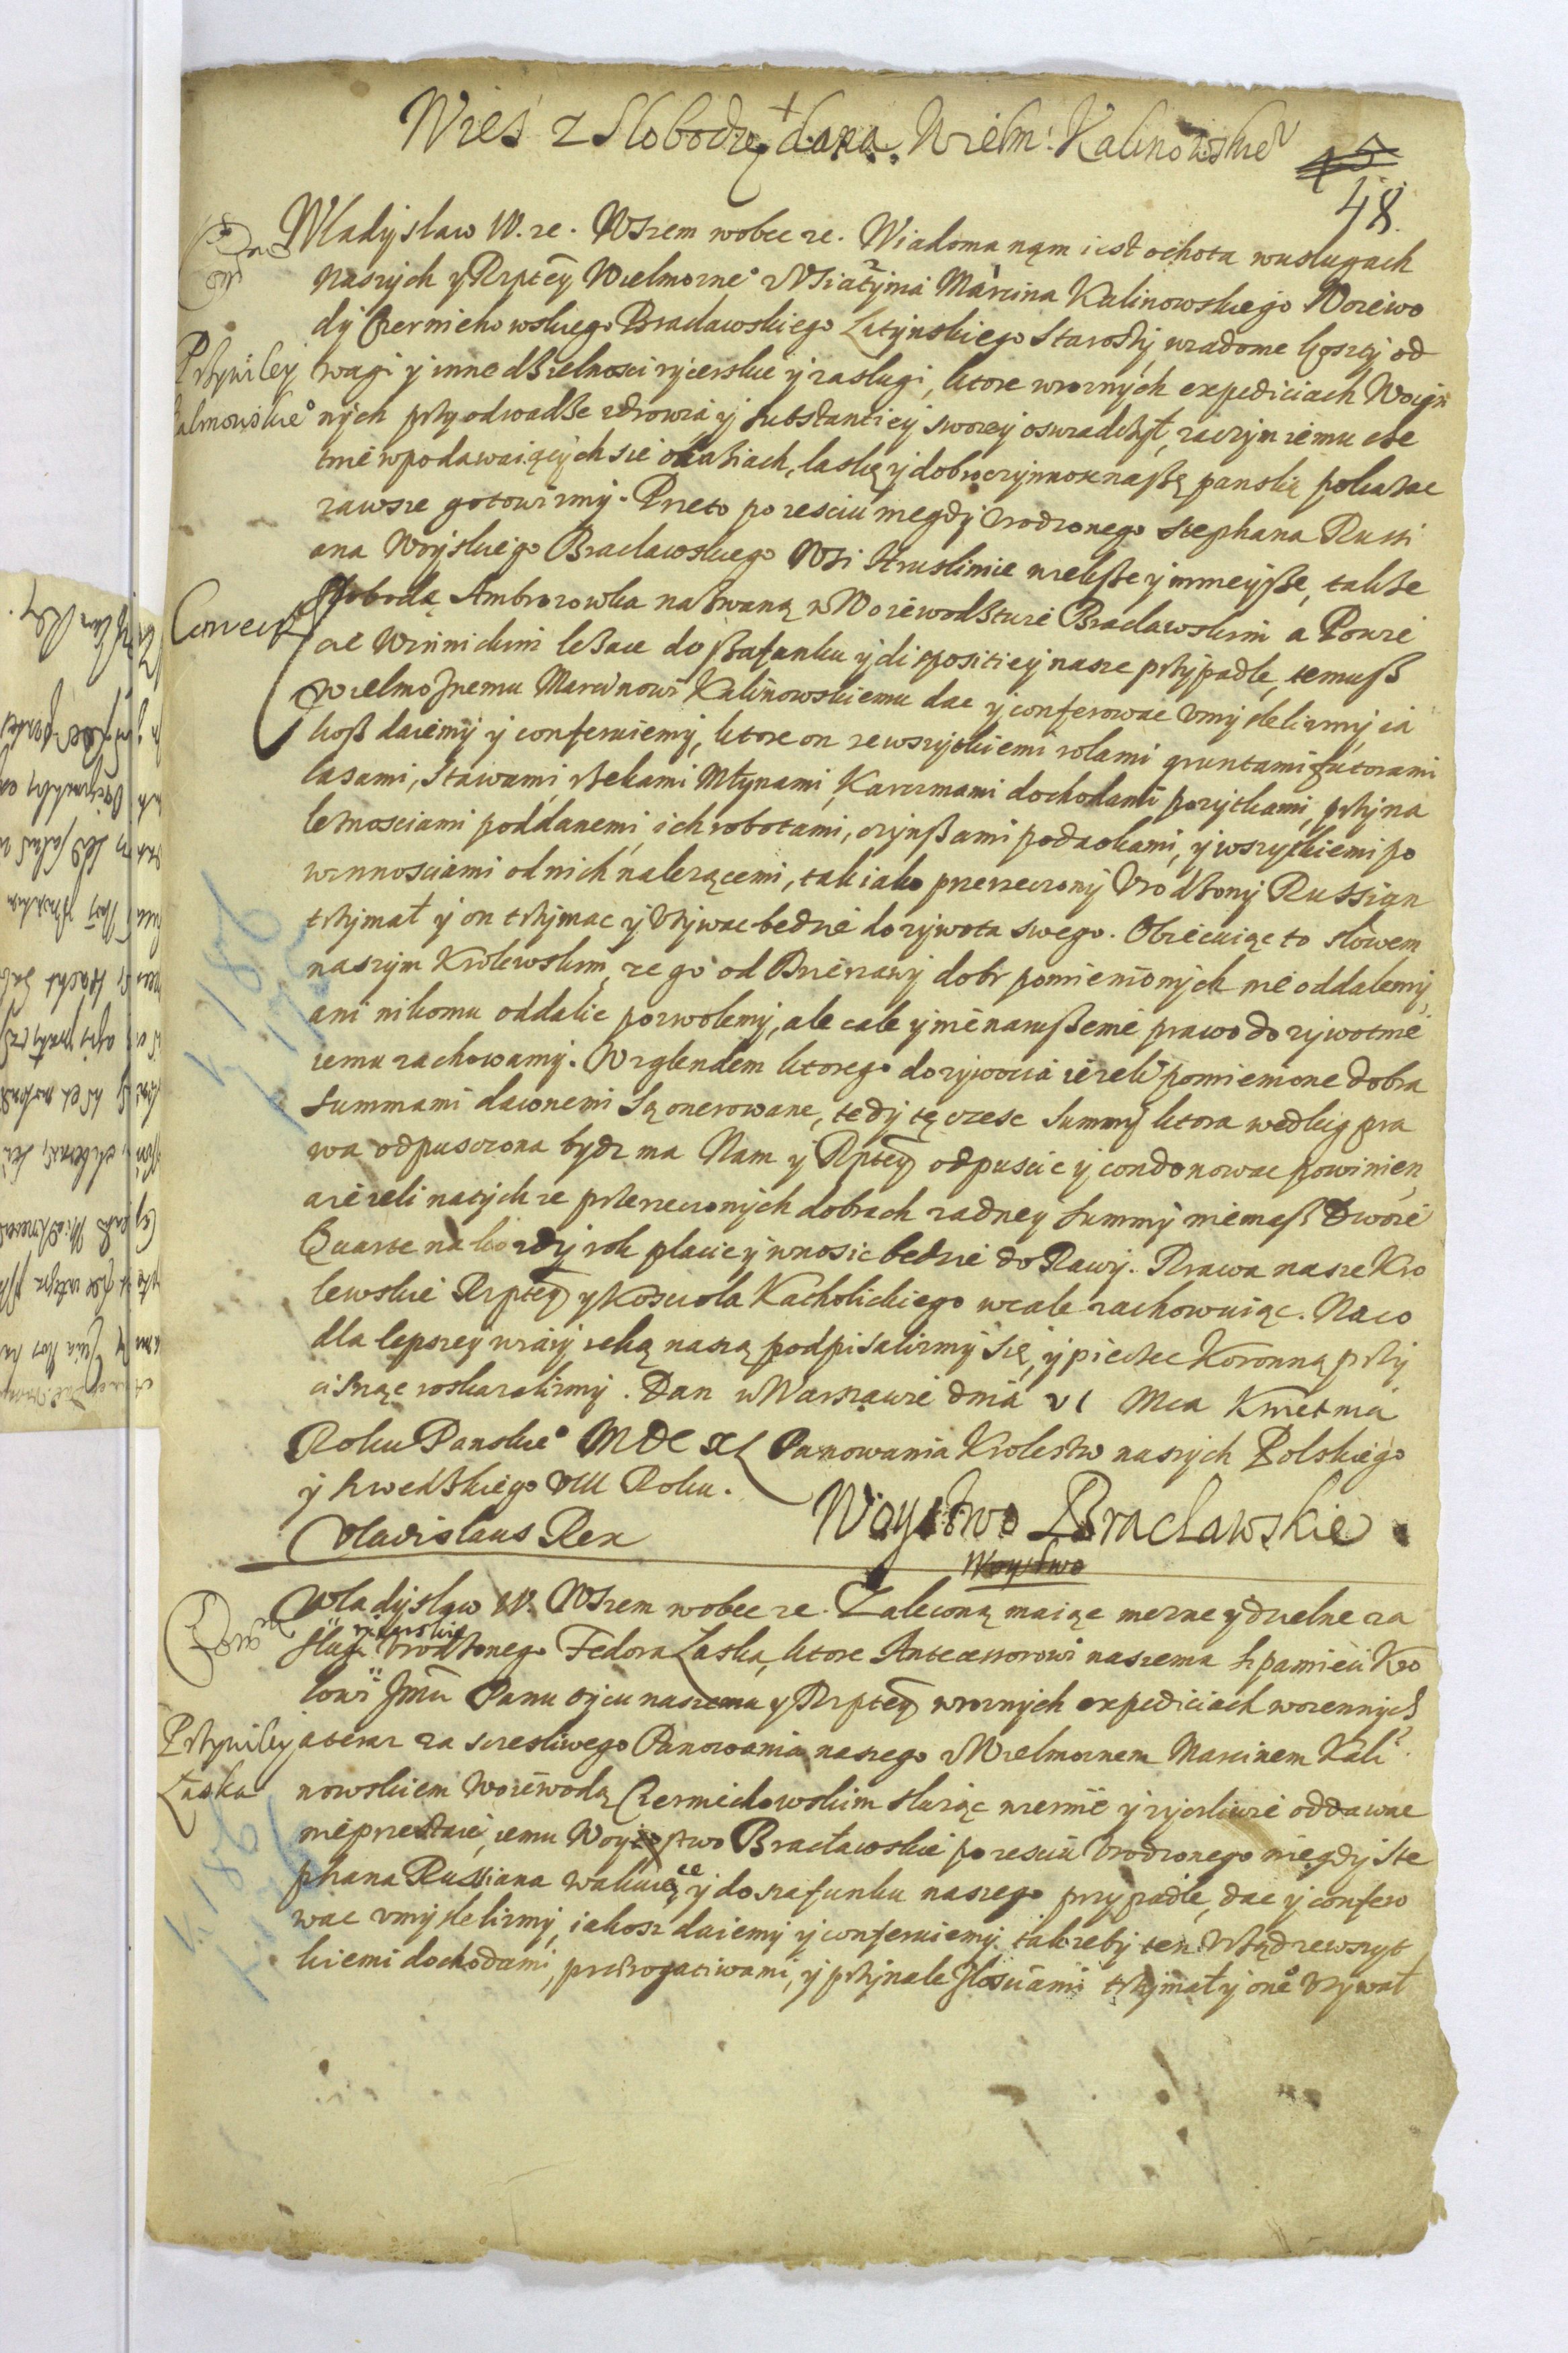 Wies z Slobodą dana Wielm: Kalinowskieu
48.
Wladyslaw IV. ze. Wszem wobec ze. Wiadoma nąm iest ochota wusługach
Naszych y Rzptey Wielmozne° z Marcina Kalinowskiego Woiewo
dy Czerniehowskiego Bracławskiego Latynskiego Starosty, wiadome koszty od
Przywiley
Kalinowskie°
wagi y inne dzielnosci rycerskie y zasługi, ktore wroznych expediciach Woięn
nych przy odwadze zdrowia y substantiey swoiey oswiadczył, zaczym iemu che
tnie wpodawaiących sie okaziach, łaskę y dobroczynnosc naszą panską pokazac
zawsze gotowizmy. Przeto po zesciu niegdy Vrodzonego Stephana Russi
ana Woyskiego Bracławskiego Wsi Kruslinie wielksze y mnieysze, takze
Slobodą Ambrozowka nazwaną w Woiewodstwie Bracławskim a Powie
cie Winnickim lezące do szafunku y dispositiey nasze przypadłe, temusz
Wielmoznemu Marcinowi Kalinowskiemu dac y conferowac vmyslelizmy, ia
kosz daiemy y conferuiemy, ktore on zewszytkiemi rolami gruntami futorami
lasami, stawami rzekami Młynami, Karczmami dochodami pozytkami, przyna
leznosciami poddanemi, ich robotami, czynszami podatkami, y wszytkiemi po
winnosciami od nich nalezącemi, tak iako przerzeczony Vrodzony Russian
trzymał y on trzymac y vzywac bedzie do zywota swego. Obiecuiąc to słowem
naszym Krolewskim, ze go od dobr pomienionych nie oddalemy,
ani nikomu oddalic pozwolemy, ale całe y nienaruszenie prawo dozywotnie
iemu zachowamy. Wzglendem ktorego dozywocia iezeli pomienione dobra
summami dawnemi są onerowane, tedy tę czesc summy ktora według pra
wa odpusczona bydz ma Nam y Rzptey odpuscic y condonowac powinien,
a iezeli natych ze przerzeczonych dobrach zadney summy niemasz
Quarte na kozdy rok płacic y wnosic bedzie do Rawy. Prawa nasze Kro
lewskie Rzptey y Kosciola Katholickiego wcale zachowuiąc. Naco
dla lepszey wiary ręką naszą podpisalizmy się, y pieczec Koronną przy
cisnąc roskazalizmy. Dan w Warszawie dnia VI Mca Kwietnia
Roku Panskie° MDCXL Panowania Krolestw naszych Polskiego
y Szwedzkiego VIII Roku.
Vladislaus Rex
Woystwo Bracławskie
Woystwo
Władysław IV. Wszem wobec ze. Zaleconą maiąc mezne y dzielne za
sługi rycerskie Vrodzonego Fedora Łaska, ktore Antecessorowi naszemu S. pamieci Kro
lowi Jmci Panu oycu naszemu y Rzptey wroznych expediciach woiennych
Przywiley
Łaska
a teraz za sczesliwego Panowania naszego z Wielmoznem Marcinem Kali
nowskiem Woiewodą Czerniechowskim słuząc wiernie y zyczliwie oddawac
nieprzestaie, iemu Woystwo Bracławskie po zesciu Vrodzonego niegdy Ste
phana Russiana wakuiące y do szafunku naszego przypadłe, dac y confero
wac vmyslelizmy, iakosz daiemy y conferuiemy, tak zeby ten Vrząd zewszyt
kiemi dochodami, prerogatiwami, y przynaleznosciami trzymał y one° vzywał